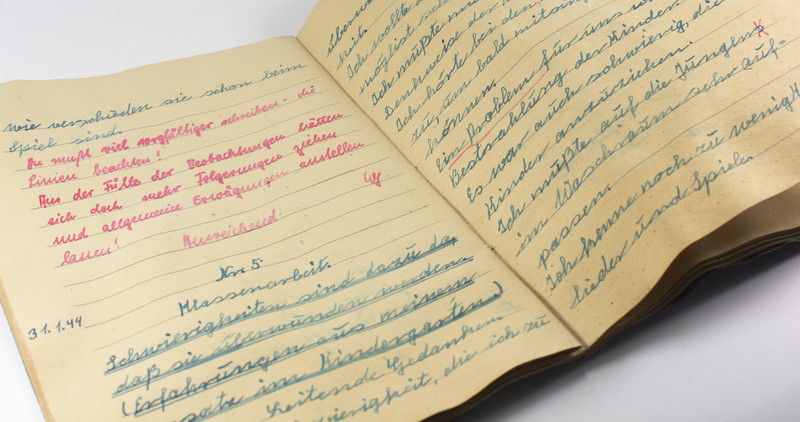 wie verschieden sie schon beim
Spiel sind.
Du mußt viel sorgfältiger schreiben - die
Linien beachten!
Aus der Fülle der Beobachtungen hätten
sich doch mehr Folgerungen ziehen
und allgemeine Erwägungen anstellen
lassen!
Ausreichend.
Nr. 5.
31.1.44
Klassenarbeit.
Schwierigkeiten sind dazu da,
daß sie überwunden werden.
(Erfahrungen aus meinem
im Kindergarten.)
Leitende Gedanken
die ich zu
keit.
Ich wollte
möglichst
Ich mußte
Denkweise der
Ich hörte bei den
zu, um bald mitsin
können.
Ein Problem für uns
Bestrahlung der Kinder.
Es war auch schwierig, die
Kinder anzuziehen.
Ich mußte auf die Jungens
im Waschraum sehr auf-
passen.
Ich kenne noch zu wenig
lieder und Spiele.